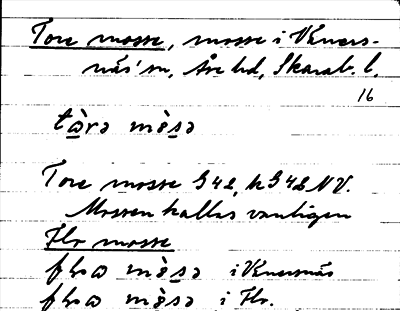 Tore mosse, mosse i Väners-
näs' sn, Åse hd, Skarab. l.
16
tὰrə mòsə
Tore mosse G42, k G42 NV.
Mossen kallas vanligen
Flo mosse
mòsə i Vänersnäs
mòsə i Flo.